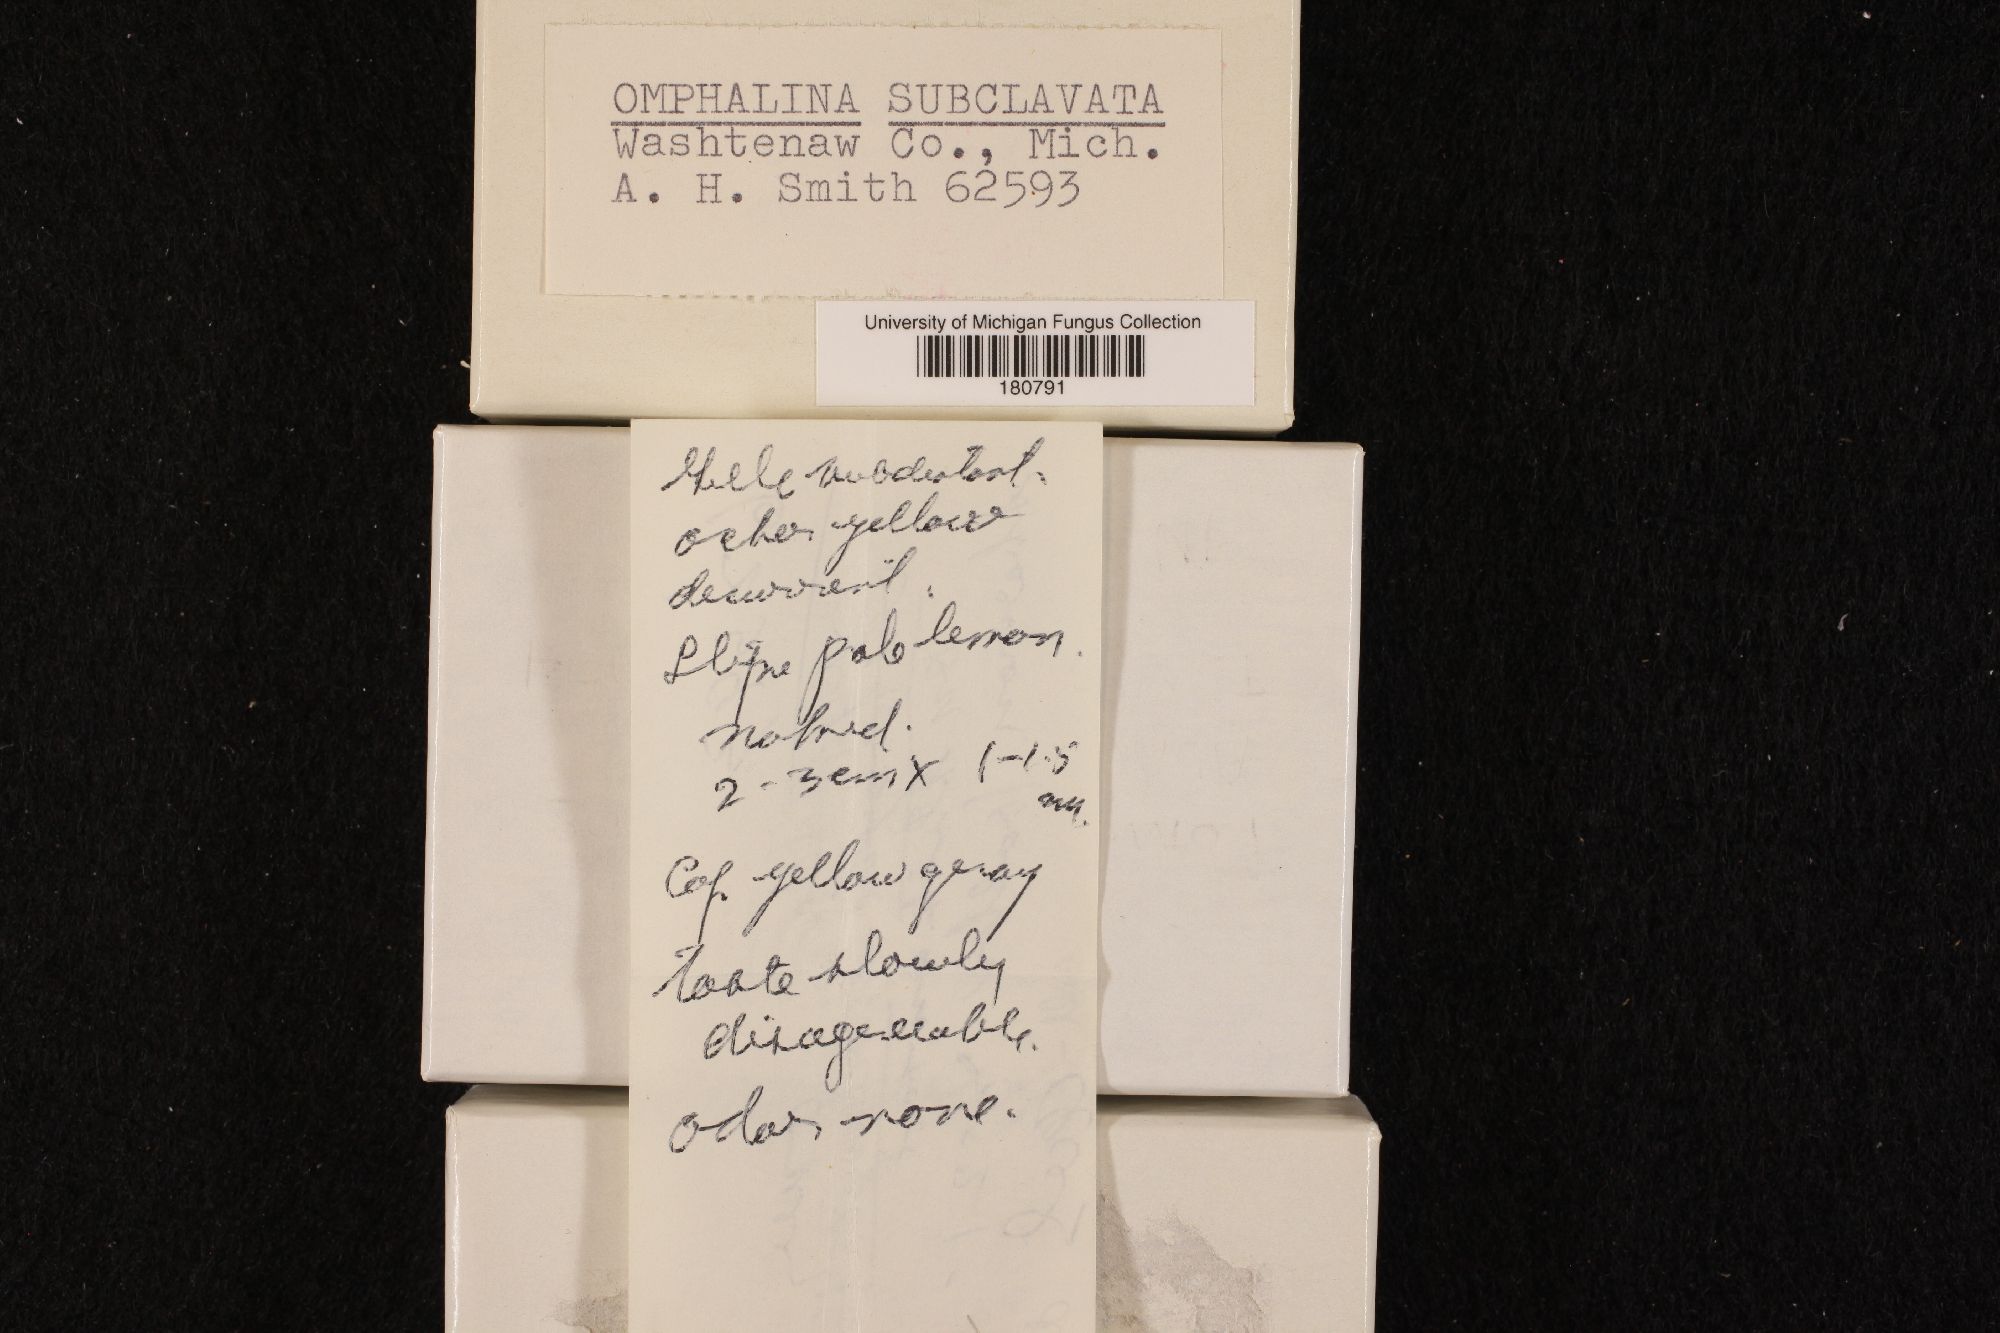 OMPHALINA SUBCLAVATA
Washtenaw Co., Mich.
A. H. Smith 62593
University of Michigan Fungus Collection
180791
Gills subdistant.
ocher yellow
decurrent.
Stipe pale lemon.
naked.
2-3cm X 1-1.5
mm.
Cap yellow gray
taste slowly
disagreeable.
odor none.